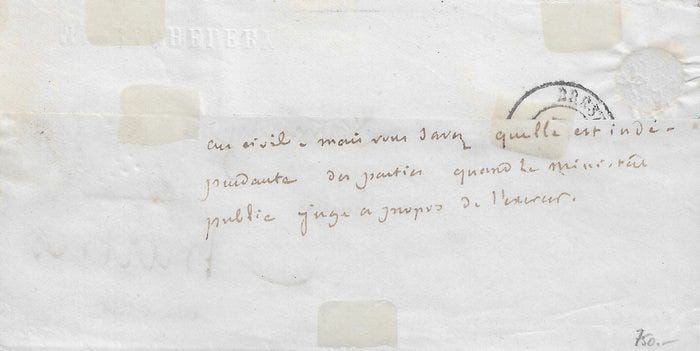 BREST
au civil. mais vous savez quelle est indé-
pendante des parties quand le ministère
public juge a propos de l'exercer.
750.-